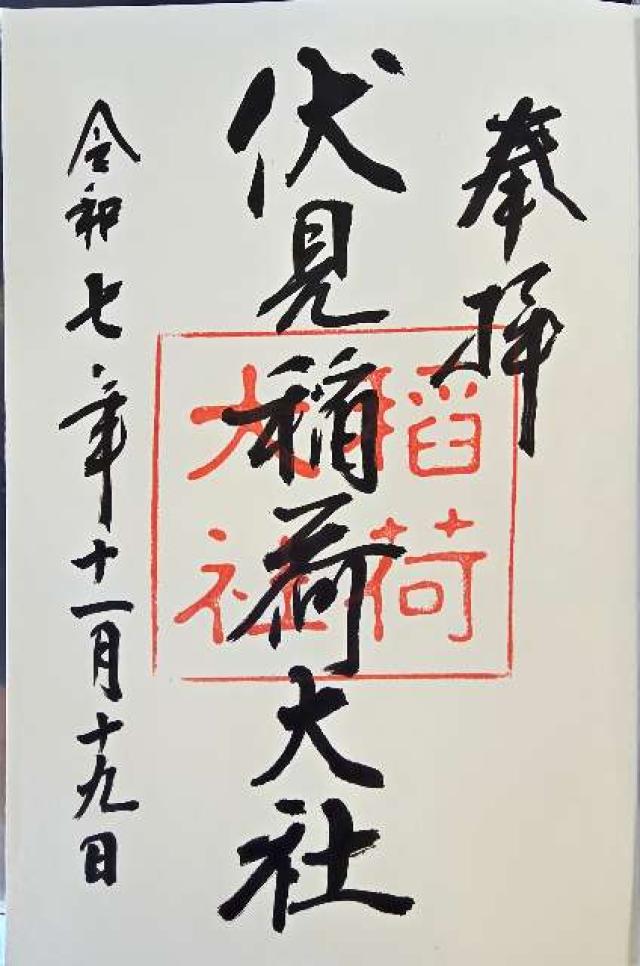 奉拝
伏見稲荷大社
稲荷
大社
令和七年十一月十九日